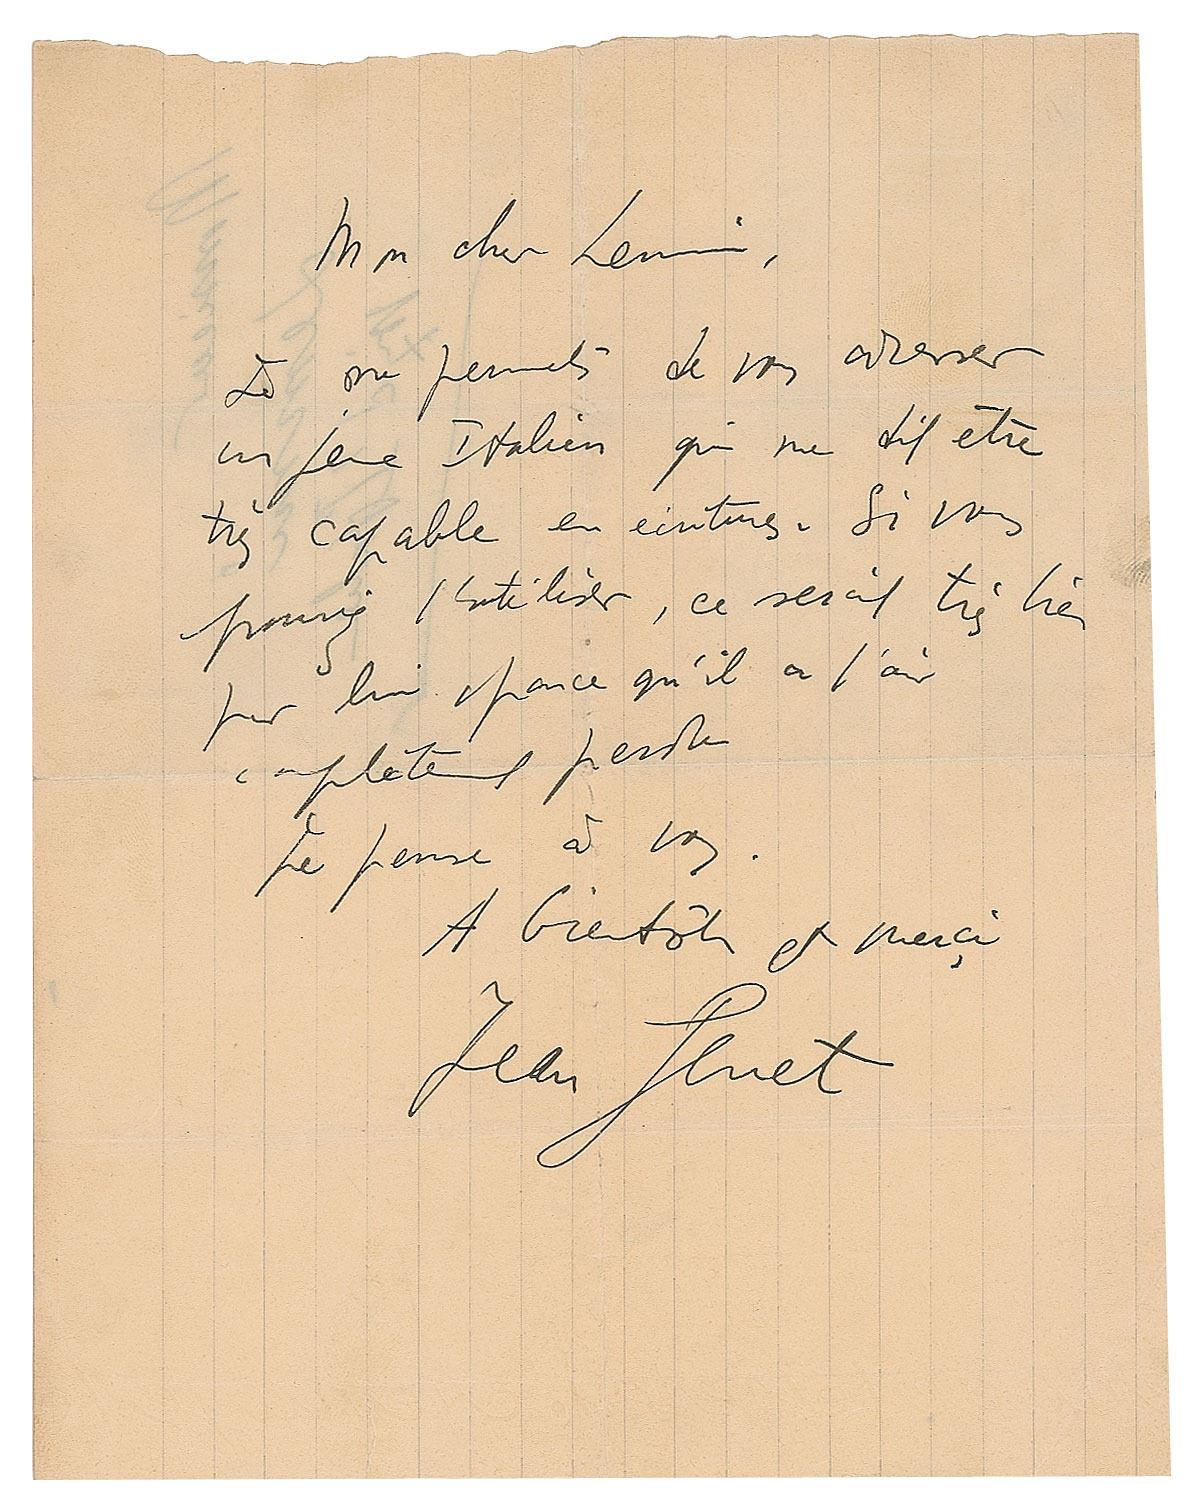 Mon cher
Je me permets de vous adresser
un jeune Italien qui me dit être
très capable en écritures. Si vous
pouviez l'utiliser, ce serait très bien
pour lui parce qu'il a l'air
complètement perdu
Je pense à vous.
A bientôt et merci
Jean Genet
Monsieur